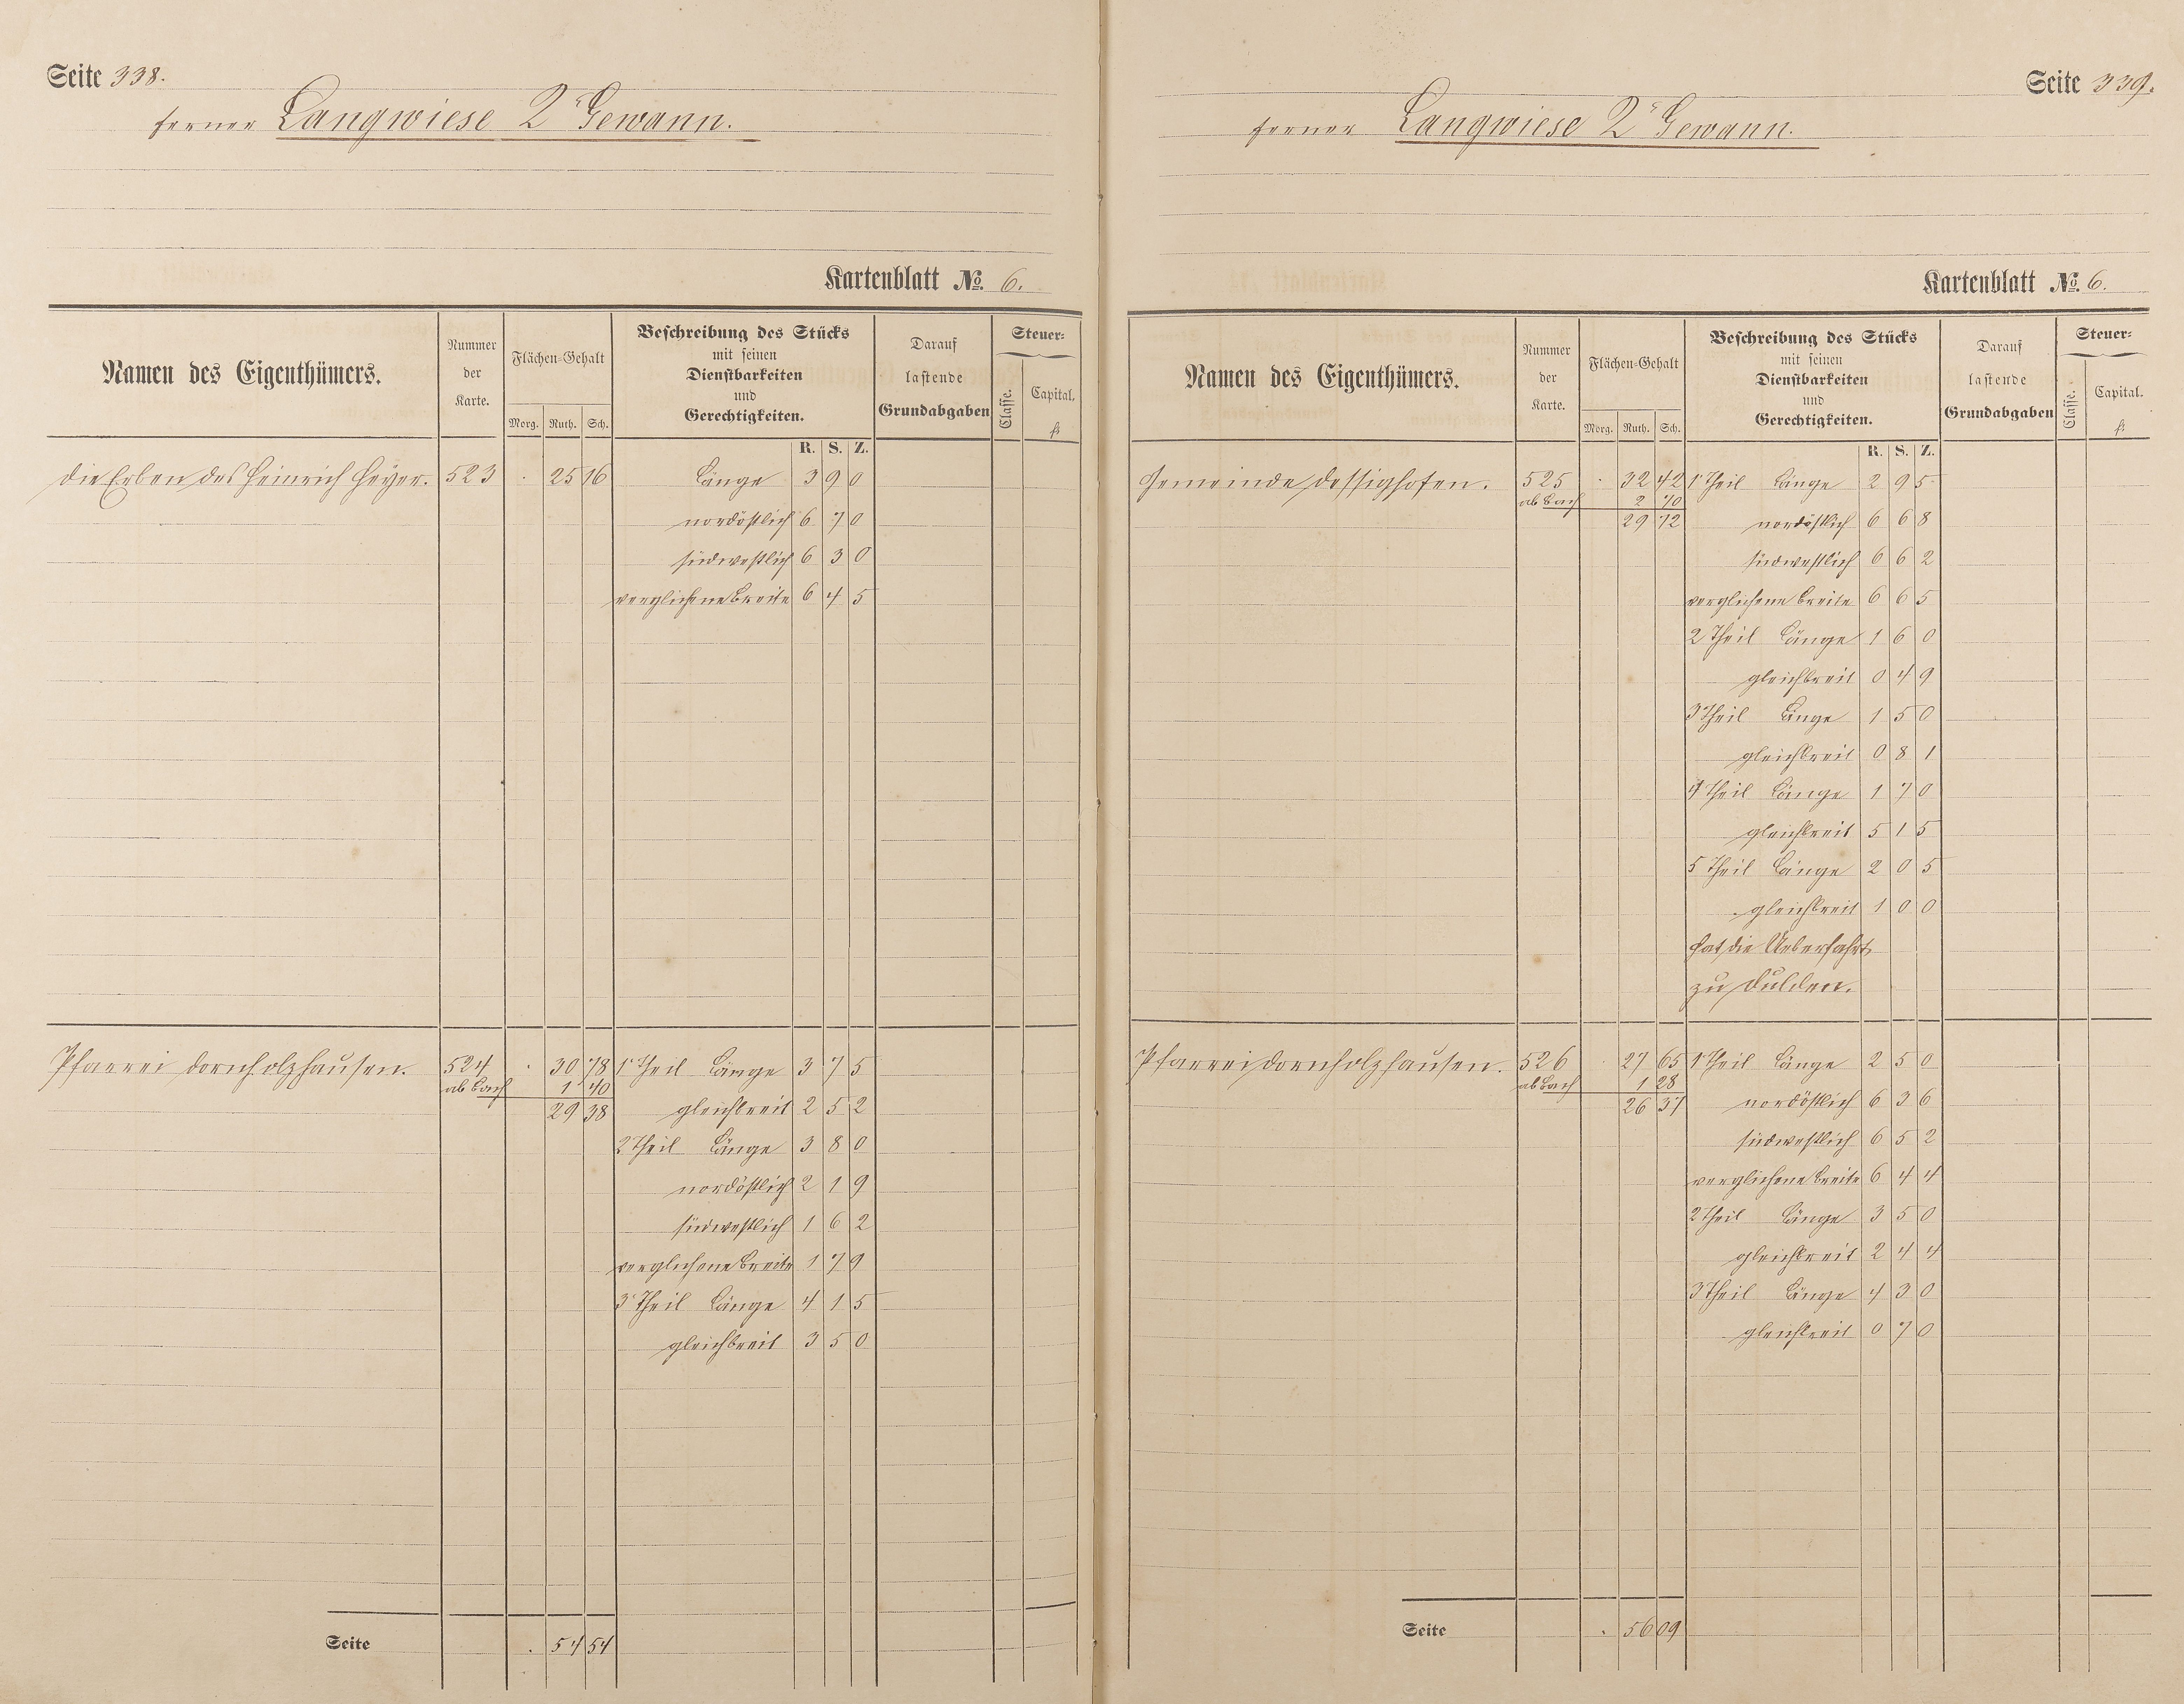 Seite 338.
ferner Langwiese 2r Gewann.
Kartenblatt No. 6.
Namen des Eigenthümers.
Nummer der Karte.
Flächen-Gehalt
Morg. Ruth. Sch.
Beschreibung des Stücks
mit seinen
Dienstbarkeiten
und
Gerechtigkeiten.
Darauf
lastende
Grundabgaben
Steuer-
Classe.
Capital.
fl.
R. S. Z.
die Erben des Heinrich Heyer. 523 . 25 16 Länge 3 9 0
nordöstlich 6 7 0
südwestlich 6 3 0
verglichene Breite 6 4 5
Pfarrei Dornholzhausen. 524 . 30 78 1r Theil Länge 3 7 5
ab Bach 1 40
29 38 gleichbreit 2 5 2
2 Theil Länge 3 8 0
nordöstlich 2 1 9
südwestlich 1 6 2
verglichene Breite 1 7 9
3r Theil Länge 4 1 5
gleichbreit 3 5 0
Seite . 54 54
Seite 339.
ferner Langwiese 2r Gewann.
Kartenblatt No. 6.
Namen des Eigenthümers.
Nummer der Karte.
Flächen-Gehalt
Morg. Ruth. Sch.
Beschreibung des Stücks
mit seinen
Dienstbarkeiten
und
Gerechtigkeiten.
Darauf
lastende
Grundabgaben
Steuer-
Classe.
Capital.
fl.
R. S. Z.
Gemeinde Dessighofen. 525 . 32 42 1r Theil Länge 2 9 5
ab Bach 2 70
29 72 nordöstlich 6 6 8
südwestlich 6 6 2
verglichene Breite 6 6 5
2 Theil Länge 1 6 0
gleichbreit 0 4 9
3 Theil Länge 1 5 0
gleichbreit 0 8 1
4 Theil Länge 1 7 0
gleichbreit 5 1 5
5 Theil Länge 2 0 5
gleichbreit 1 0 0
hat die Ueberfahrt
zu dulden.
Pfarrei Dornholzhausen. 526 . 27 65 1r Theil Länge 2 5 0
ab Bach 1 28
26 37 nordöstlich 6 3 6
südwestlich 6 5 2
verglichene Breite 6 4 4
2 Theil Länge 3 5 0
gleichbreit 2 4 4
3 Theil Länge 4 3 0
gleichbreit 0 7 0
Seite . 56 09